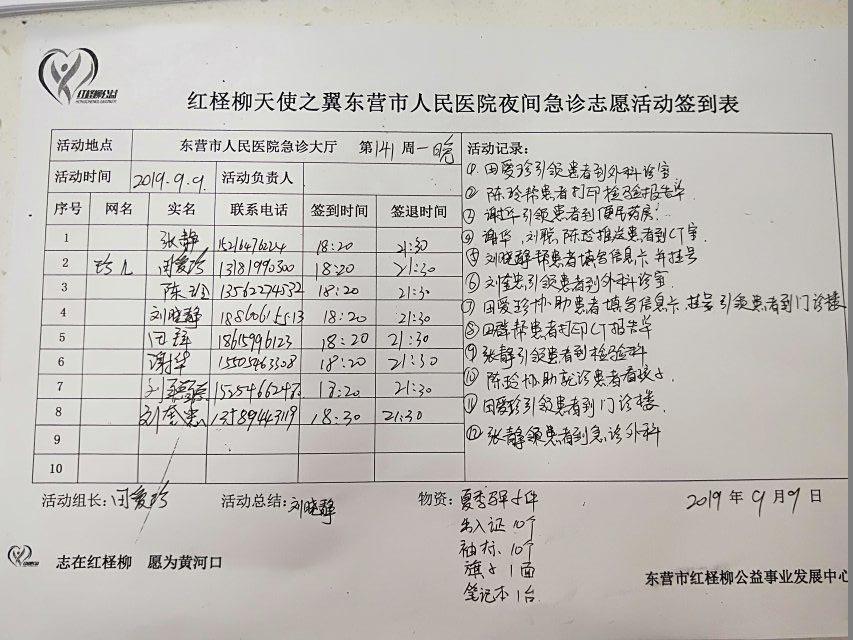 红柽柳公益
红柽柳天使之翼东营市人民医院夜间急诊志愿活动签到表
活动地点 东营市人民医院急诊大厅 第141周一晚
活动时间 2019.9.9. 活动负责人
序号 网名 实名 联系电话 签到时间 签退时间
1 张静 15216476224 18:20 21:30
2 珍儿 田爱珍 13181990300 18:20 21:30
3 陈玲 13562274532 18:20 21:30
4 刘晓静 18860615513 18:20 21:30
5 田群 18615996123 18:20 21:30
6 谢华 15505463308 18:20 21:30
7 刘 18:20 21:30
8 刘奎忠 13589443119 18:30 21:30
9
10
活动记录:
① 田爱珍引领患者到外科诊室
② 陈玲帮患者打印检验报告单
③ 谢华引领患者到便民药房.
④ 谢华、刘 陈玲推送患者到CT室.
⑤ 刘晓静帮患者填写信息卡并挂号
⑥ 刘奎忠引领患者到外科诊室
⑦ 田爱珍协助患者填写信息卡、挂号引领患者到门诊楼
⑧ 田群帮患者打印CT报告单
⑨ 张静引领患者到检验科
⑩ 陈玲协助就诊患者看孩子.
⑪ 田爱珍引领患者到门诊楼
⑫ 张静领患者到急诊外科
活动组长: 田爱珍 活动总结: 刘晓静 物资: 夏季 件
出入证 10个
袖标、10个
旗子 1面
笔记本 1台
2019年9月9日
志在红柽柳 愿为黄河口
东营市红柽柳公益事业发展中心